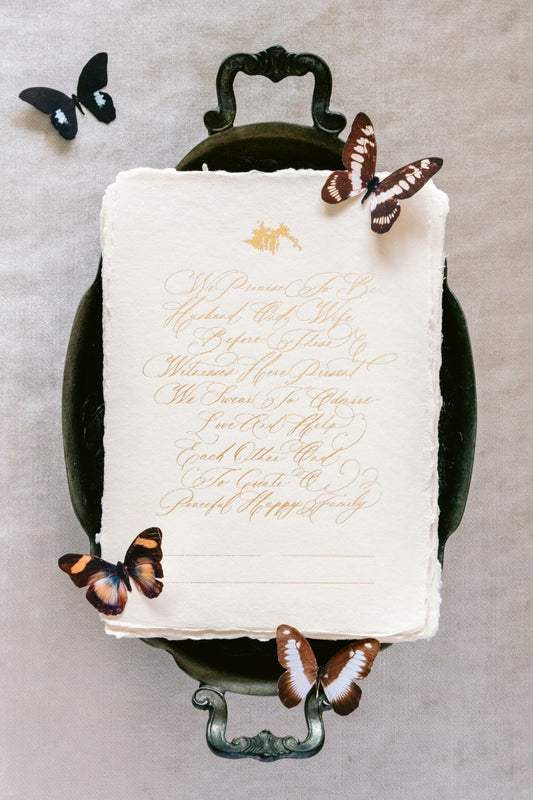 We Promise To Be
Husband And Wife
Before These
Witnesses Here Present
We Swear To Admire
Love And Help
Each Other And
To Create A
Peaceful Happy Family